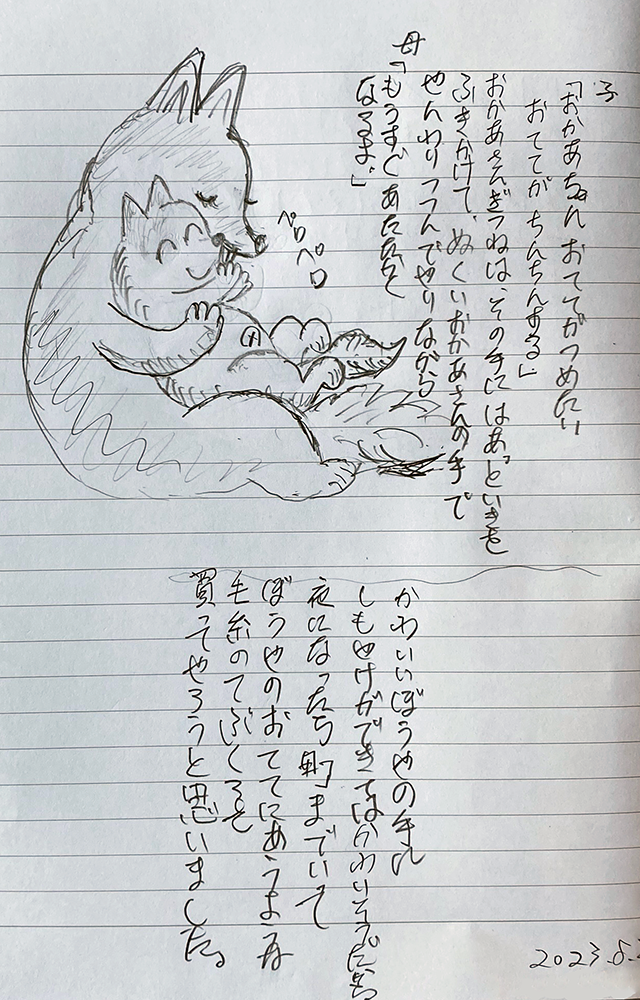 子
「おかあちゃんおててがつめたい
おててがちんちんする」
おかあさんぎつねは、その手にはあっといきを
ふきかけて、ぬくいおかあさんの手で
やんわりつつんでやりながら
母「もうすぐあたたかく
なるよ。」
ペロ
ペロ
かわいいぼうやの手に
しもやけができてはかわいそうだから
夜になったら町までいって
ぼうやのおててにあうような
毛糸のてぶくろを
買ってやろうと思いました。
2023.8.